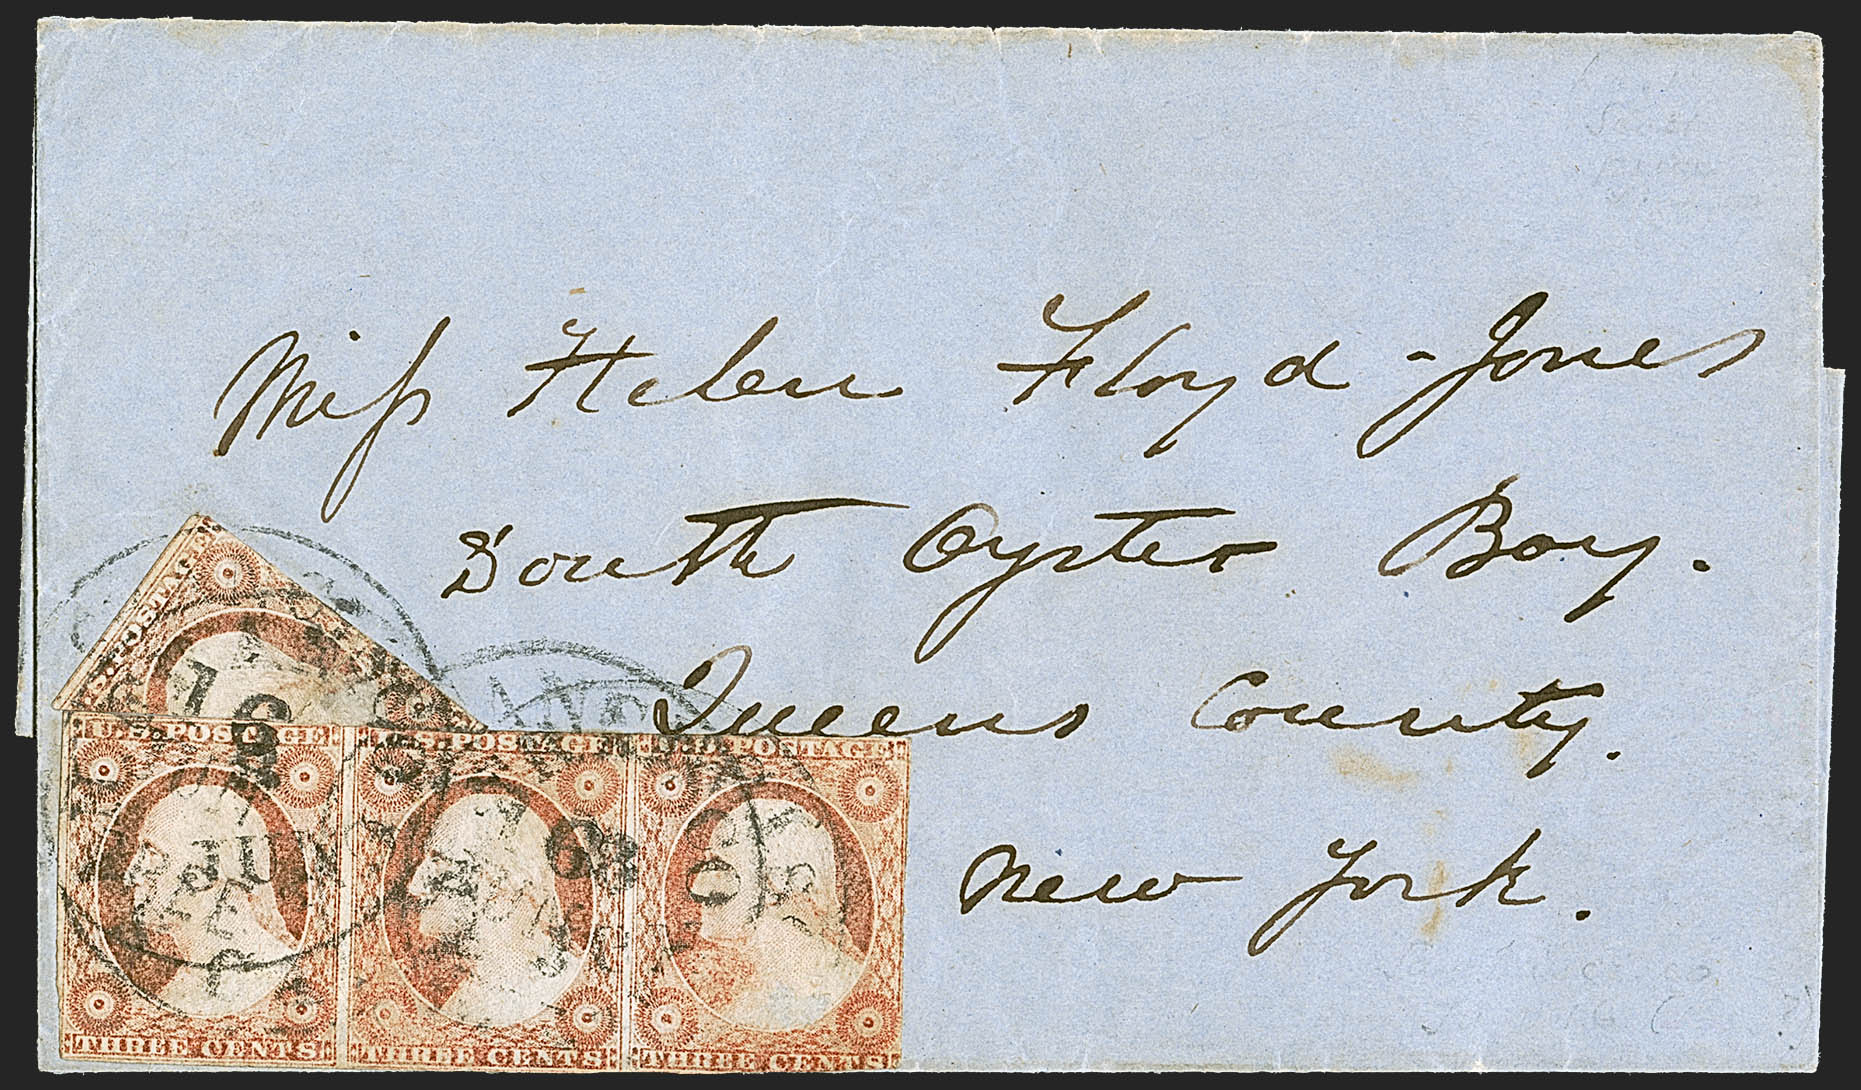 Miss Helen Floyd-Jones
South Oyster Bay.
Queens County.
New York.
U.S. POSTAGE
U.S. POSTAGE U.S. POSTAGE U.S. POSTAGE
JUN
THREE CENTS THREE CENTS THREE CENTS